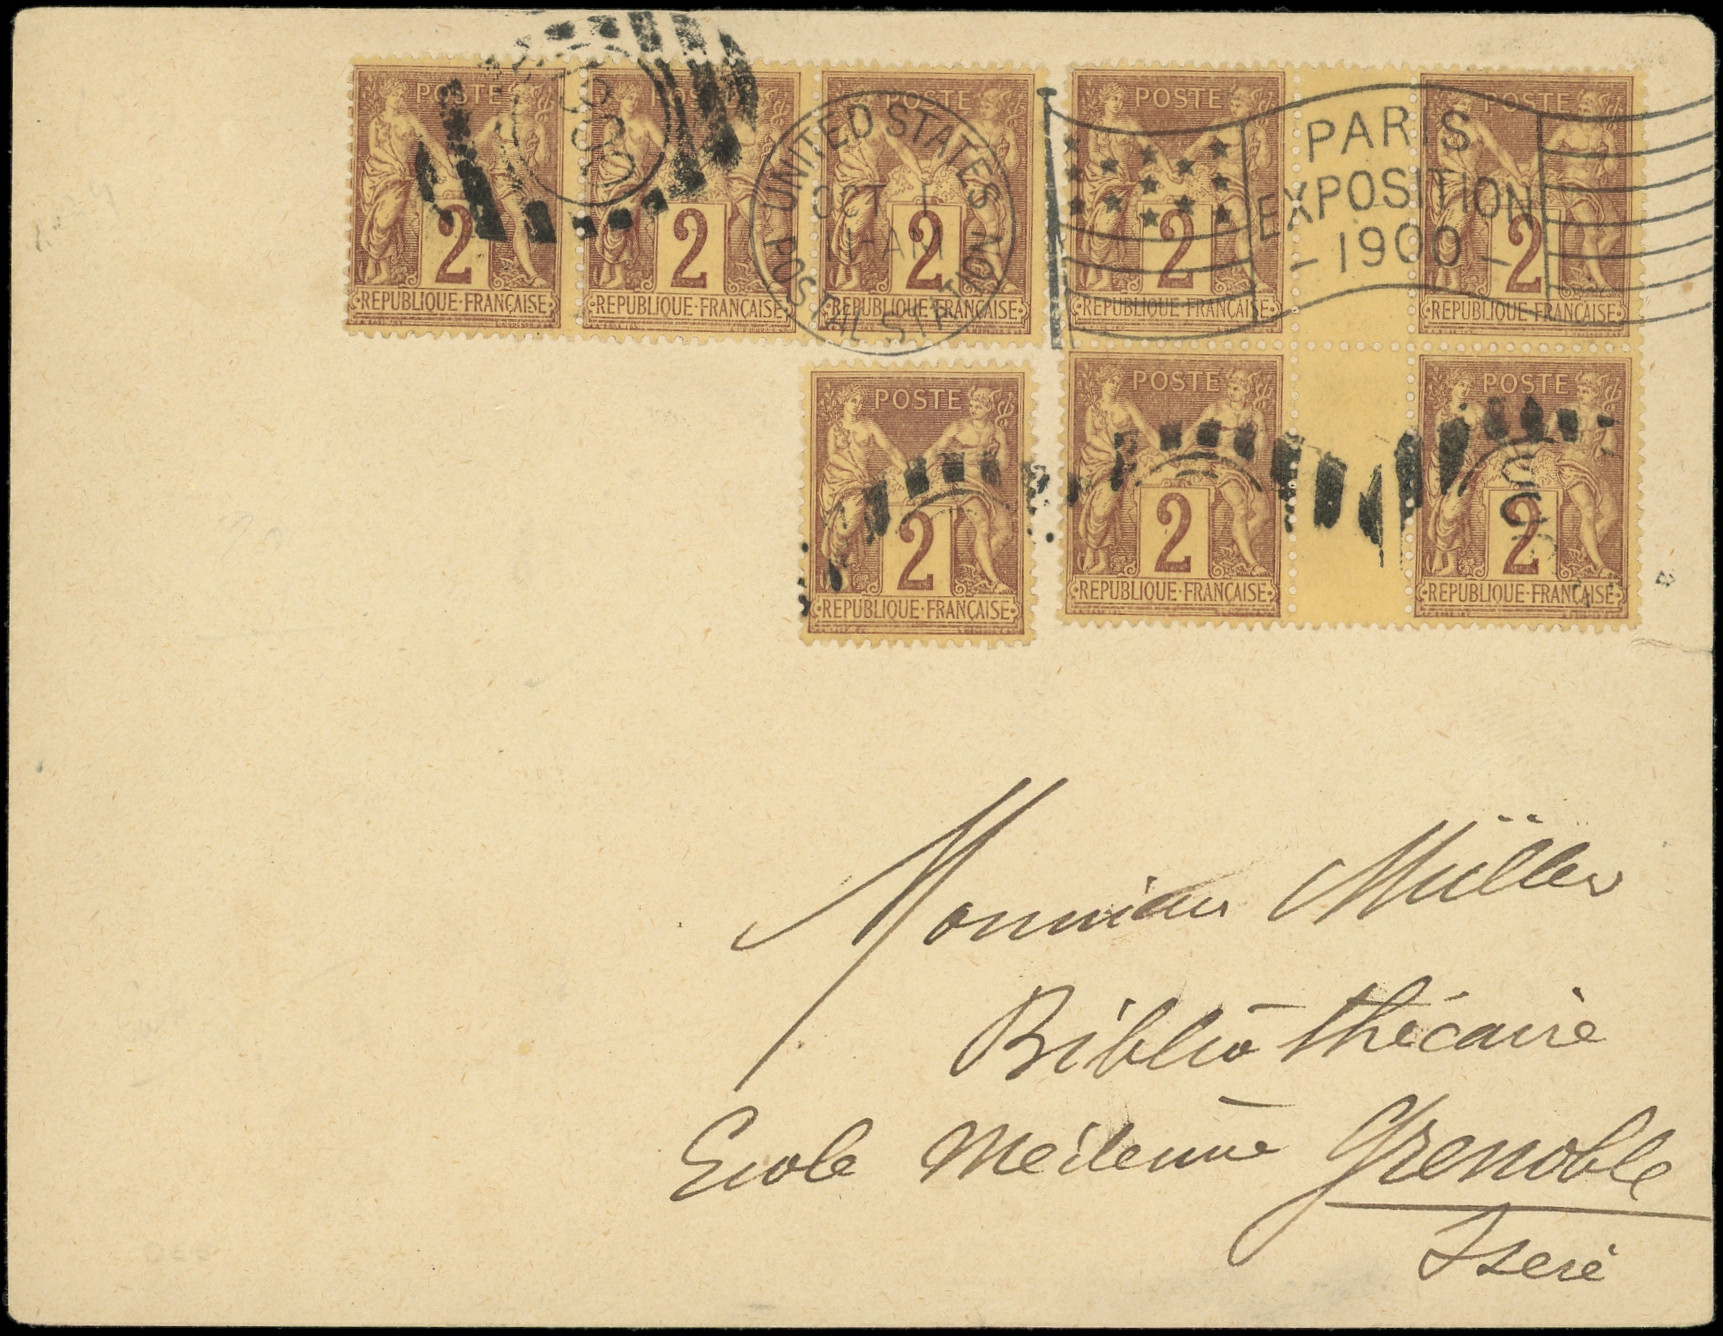 POSTE POSTE POSTE POSTE POSTE
2 2 2 2 2
REPUBLIQUE·FRANÇAISE REPUBLIQUE·FRANÇAISE REPUBLIQUE·FRANÇAISE REPUBLIQUE·FRANÇAISE REPUBLIQUE·FRANÇAISE
UNITED STATES
OCT 1
POSTAL STATION
PARIS
EXPOSITION
-1900-
POSTE POSTE POSTE
2 2 2
REPUBLIQUE·FRANÇAISE REPUBLIQUE·FRANÇAISE REPUBLIQUE·FRANÇAISE
Monsieur Müller
Bibliothécaire
Ecole Médecine Grenoble
Isere